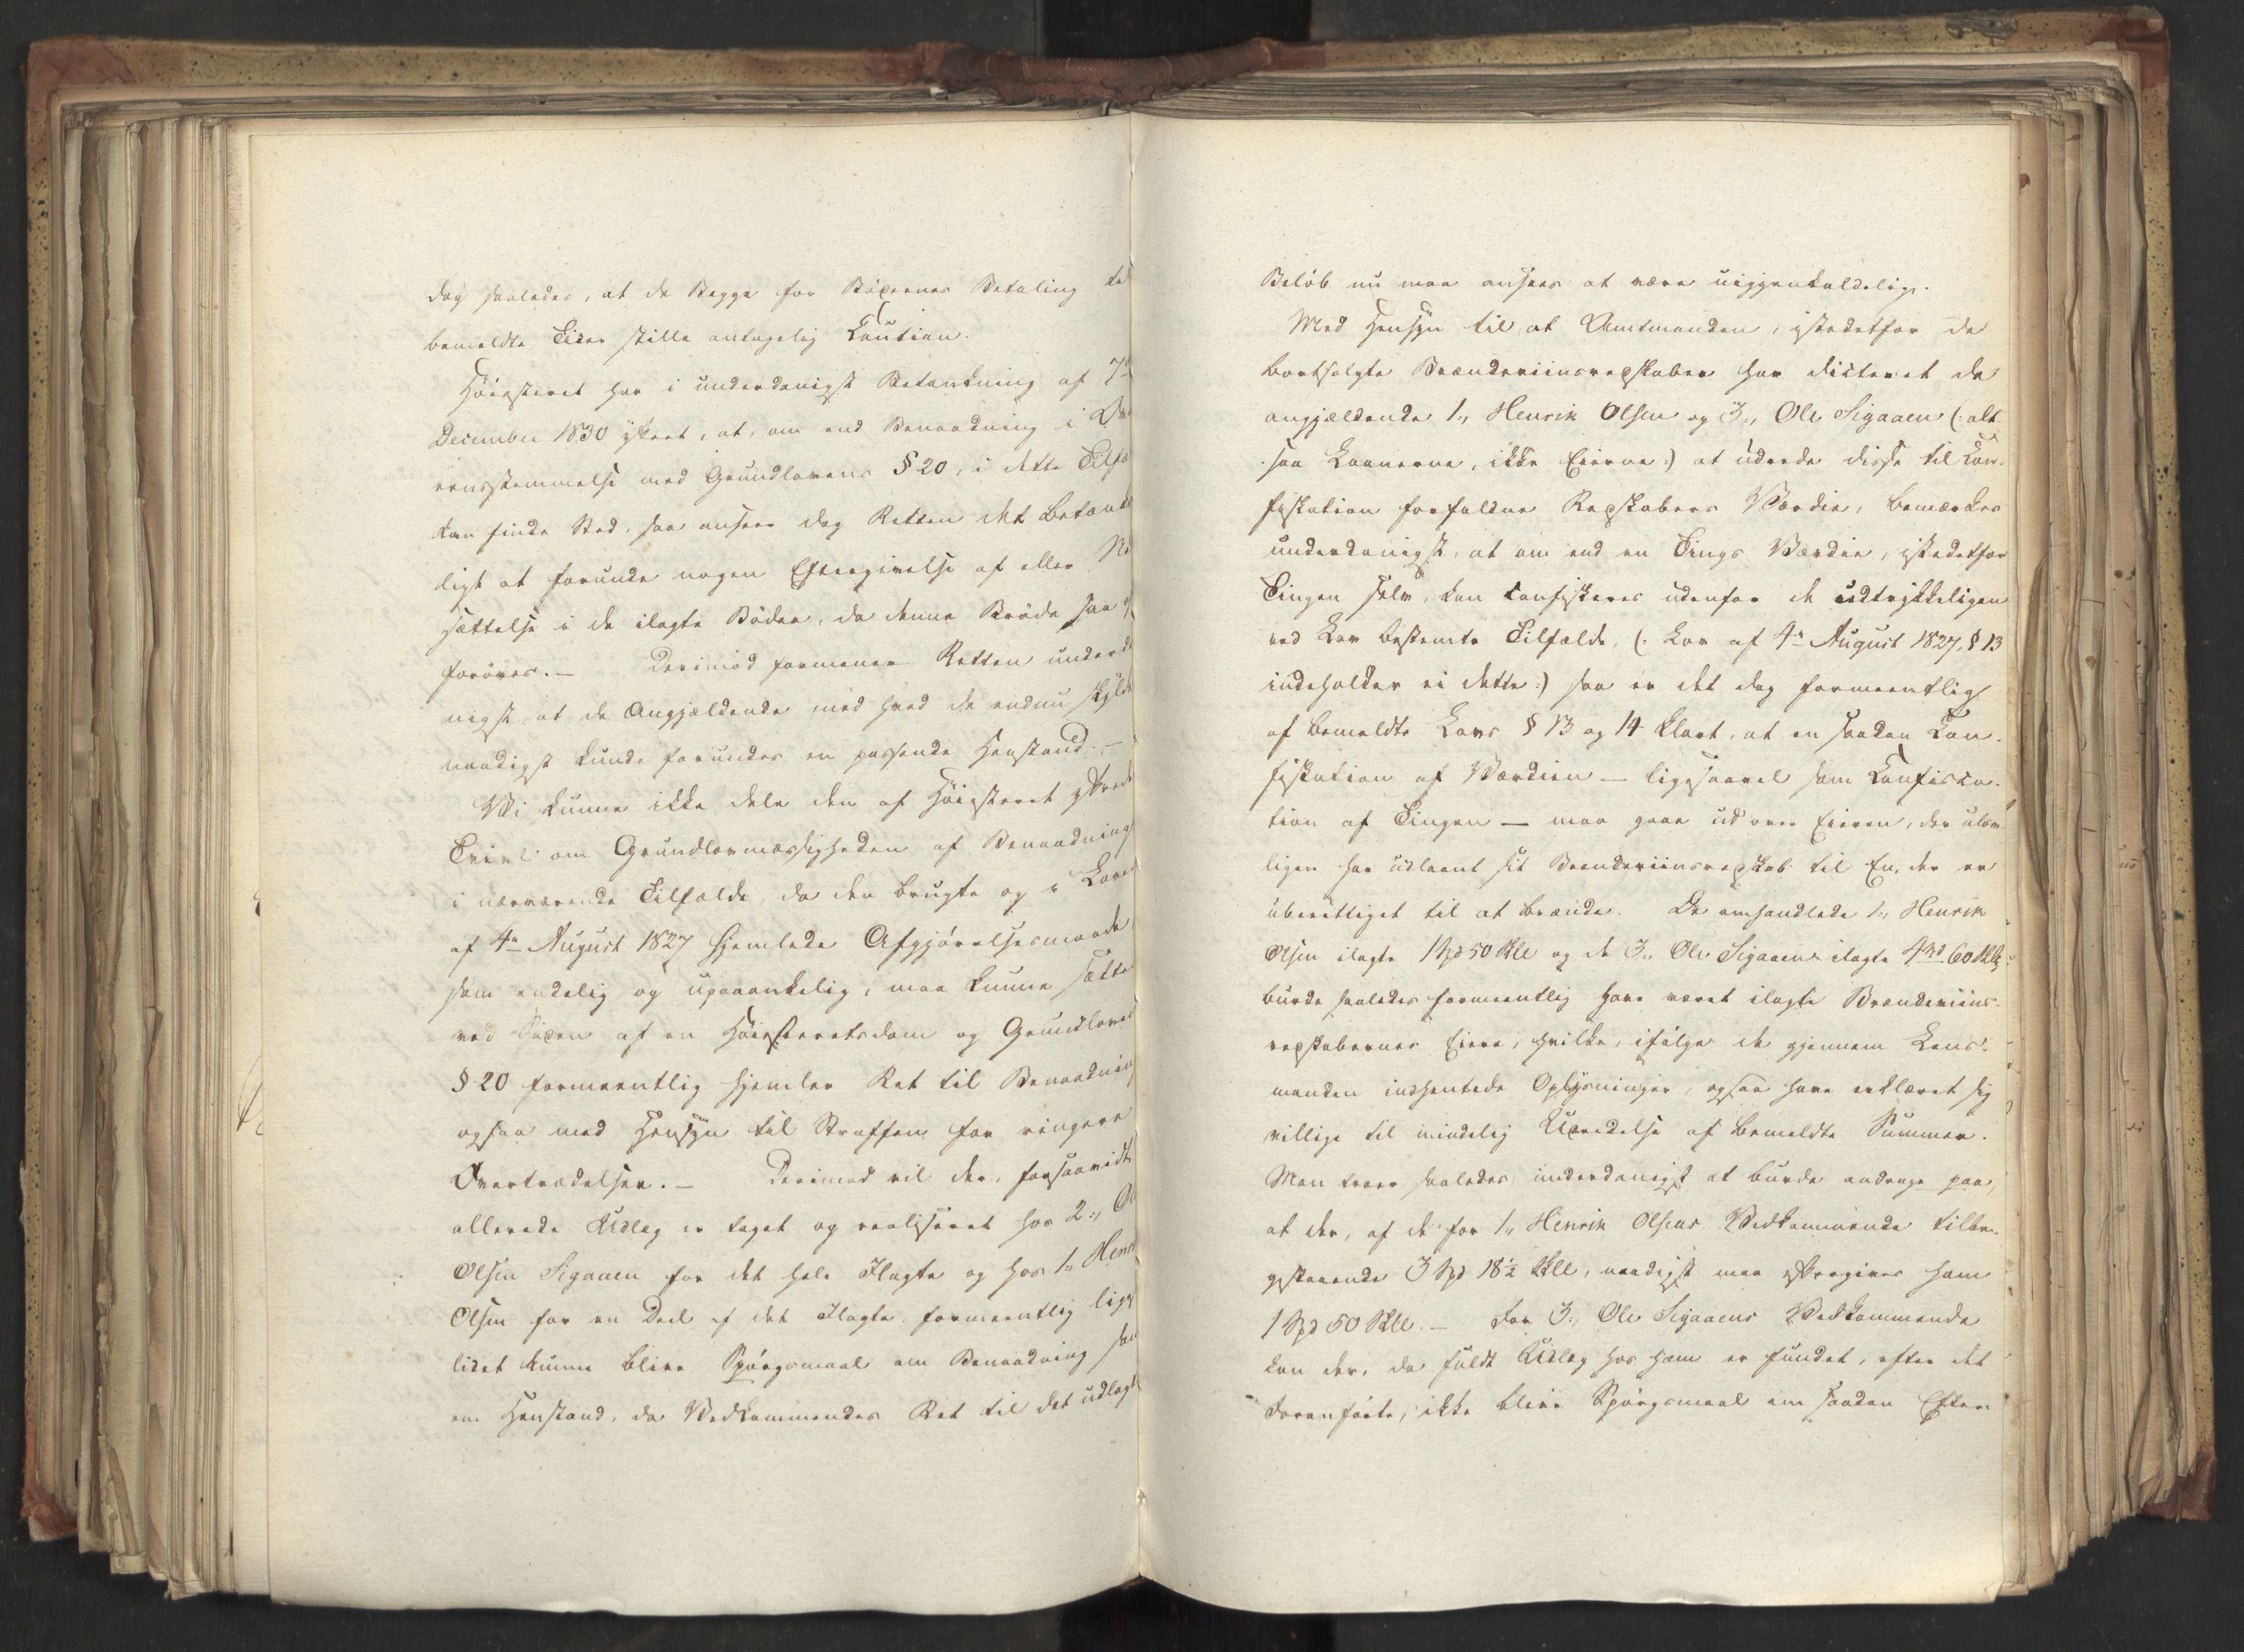 dog saaledes, at de Begge for Bödernes Betaling til
bemeldte Tider stille antagelig Caution.
Höiesteret har i underdanigst Betænkning af 7de
December 1830 yttret, at, om end Benaadning i
eensstemmelse med Grundlovens § 20, i dette
kan finde Sted, saa anseer dog Retten det
ligt at forunde nogen Eftergivelse af eller
sættelse i de ilagte Böder, da denne Bröde saa
foröves. — Derimod formener Retten
nigst, at de Angjældende med hvad de endnu
naadigst kunde forundes en passende Henstand. —
Vi kunne ikke dele den af Höiesteret yttrede
Tvivl om Grundlovmæssigheden af Benaadning
i nærværende Tilfælde, da den brugte og i Loven
af 4de August 1827 hjemlede Afgjörelsesmaade
som endelig og upaaankelig, maa kunne sættes
ved Siden af en Höiesteretsdom og Grundlovens
§ 20 formeentlig hjemler Ret til Benaadning
ogsaa med Hensyn til Straffen for ringere
Overtrædelser. — Derimod vil der, forsaavidt
allerede Udlæg er taget og realiseret hos 2.,
Olsen Sigaaen for det hele Ilagte og hos 1.,
Olsen for en Deel af det Ilagte formeentlig
lidet kunne blive Spörgsmaal om Benaadning
om Henstand, da Vedkommendes Ret til det udlagte
Belöb nu maa ansees at være uigjenkaldelig.
Med Hensyn til, at Amtmanden, istedetfor de
bortsolgte Brænderiinsredskaber har dicteret de
angjældende 1., Henrik Olsen og 3., Ole Sigaaen (: alt-
saa Laanerne, ikke Eierne :) at udrede disse til Con-
fiskation forfaldne Redskabers Værdie, bemærkes
underdanigst, at om end en Tings Værdie, istedetfor
Tingen selv, kan confiskeres udenfor de udtrykkeligen
ved Lov bestemte Tilfælde, (: Lov af 4de August 1827, § 13
indeholder ei dette :) saa er det dog formeentlig
af bemeldte Lovs § 13 og 14 klart, at en saadan Con-
fiskation af Værdien — ligesaavel som Confisca-
tion af Tingen — maa gaae ud over Eieren, der ulov-
ligen har udlaant sit Brænderiinsredskab til En, der er
uberettiget til at brænde. De omhandlede 1., Henrik
Olsen ilagte 1 Spd 50 Skll og de 3., Ole Sigaaen ilagte 4 Spd 60 Skll
burde saaledes formeentlig have været ilagte Brænderiins-
redskabernes Eiere, hvilke, ifölge de gjennem Lens-
manden indhentede Oplysninger, ogsaa have erklæret sig
villige til mindelig Udredelse af bemeldte Summer.
Man troer saaledes underdanigst at burde andrage paa,
at der, af de for 1., Henrik Olsens Vedkommende tilbage-
staaende 3 Spd 18½ Skll, naadigst maa eftergives ham
1 Spd 50 Skll. — For 3., Ole Sigaaens Vedkommende
kan der, da fuldt Udlæg hos ham er fundet, efter det
Foranförte, ikke blive Spörgsmaal om saadan Efter-